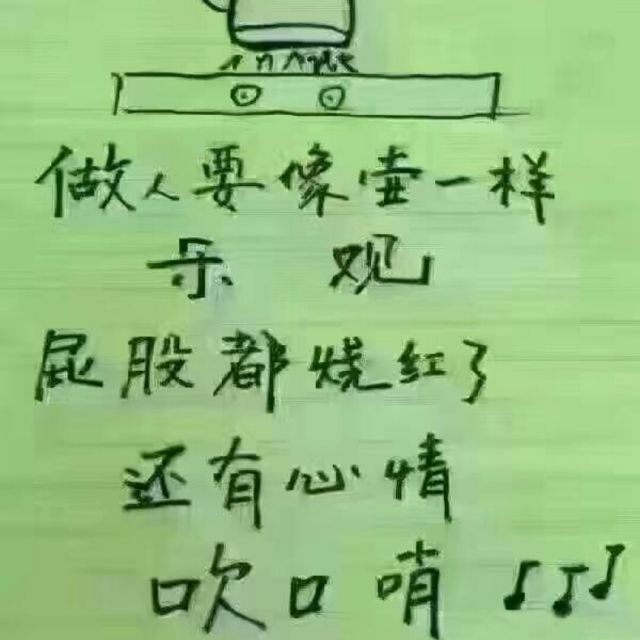 做人要像壶一样
乐观
屁股都烧红了
还有心情
吹口哨